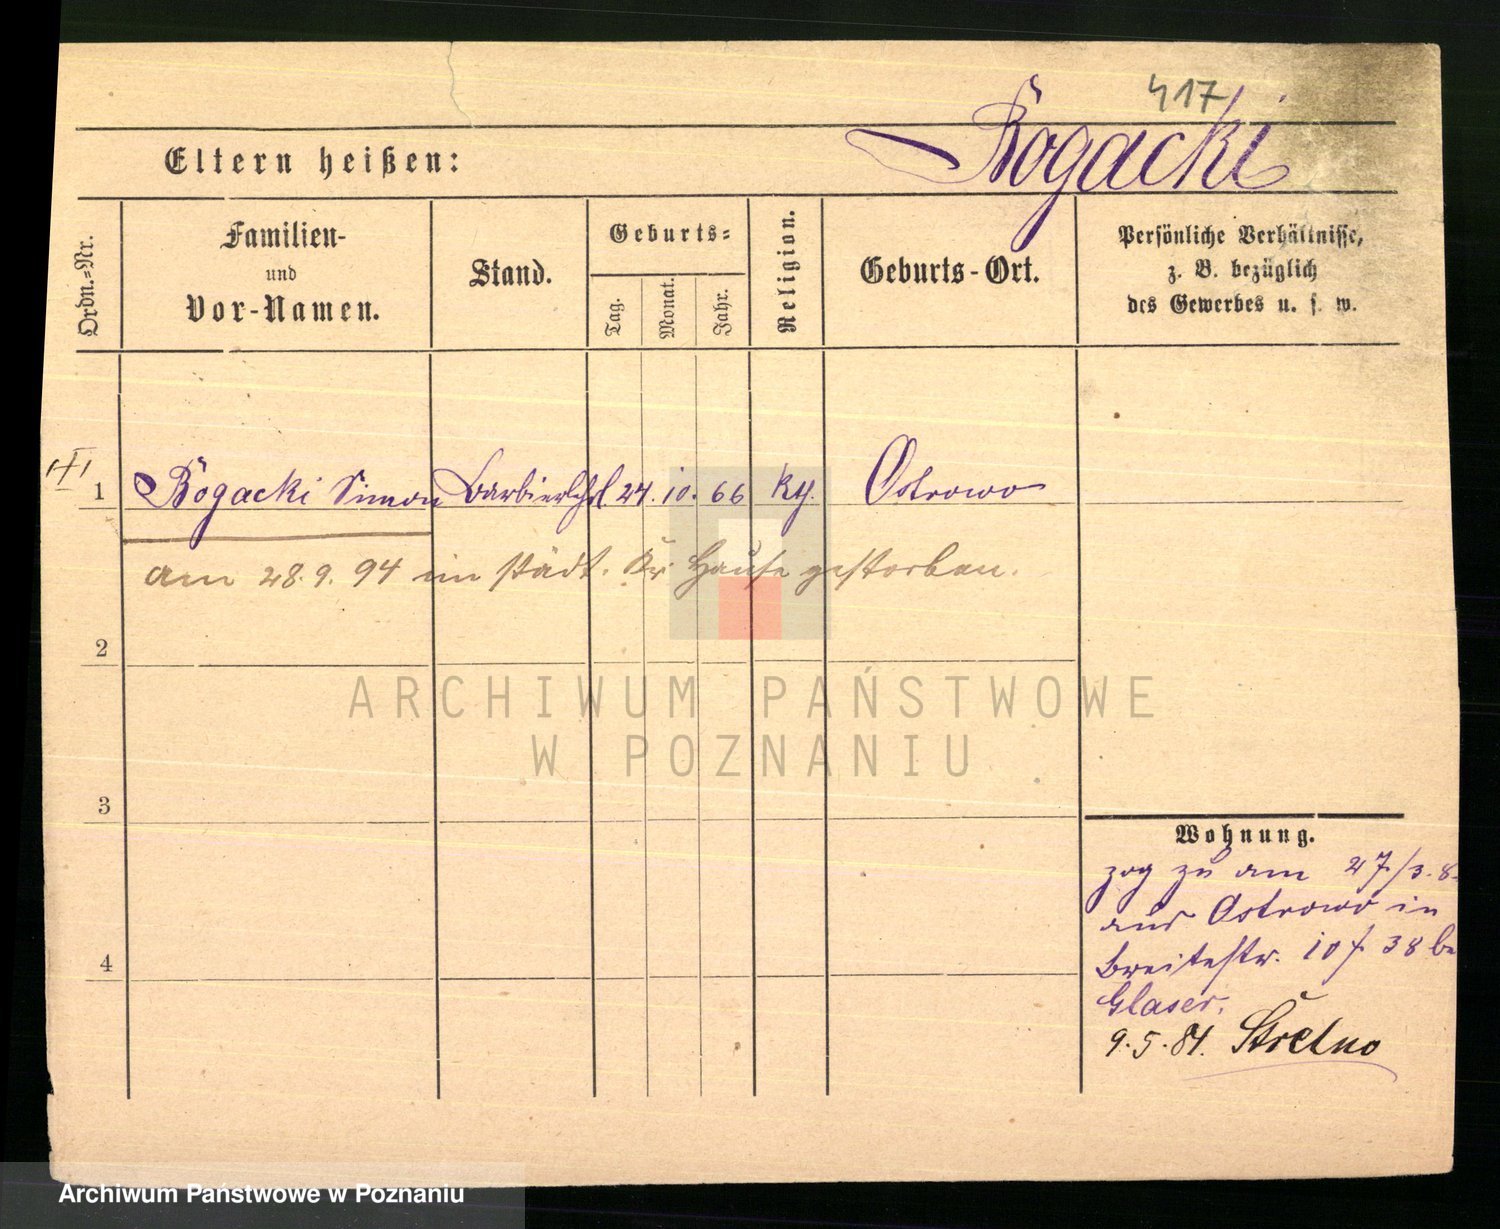 417
Bogacki
Eltern heißen:
Ordn.-Nr.
Familien-
und
Vor-Namen.
Stand.
Geburts-
Tag.
Monat.
Jahr.
Religion.
Geburts-Ort.
Persönliche Verhältnisse,
z. B. bezüglich
des Gewerbes u. s. w.
1 Bogacki Simon Barbierlehrl. 24. 10. 66 Ostrowo
am 28.9. 94 im städt. Kr Hause gestorben.
2
3
4
ARCHIWUM PAŃSTWOWE
W POZNANIU
Wohnung.
zog zu am 27/3. 8
aus Ostrowo in
Breitestr. 10 38 be
Glaser.
9.5.84. Strelno
Archiwum Państwowe w Poznaniu